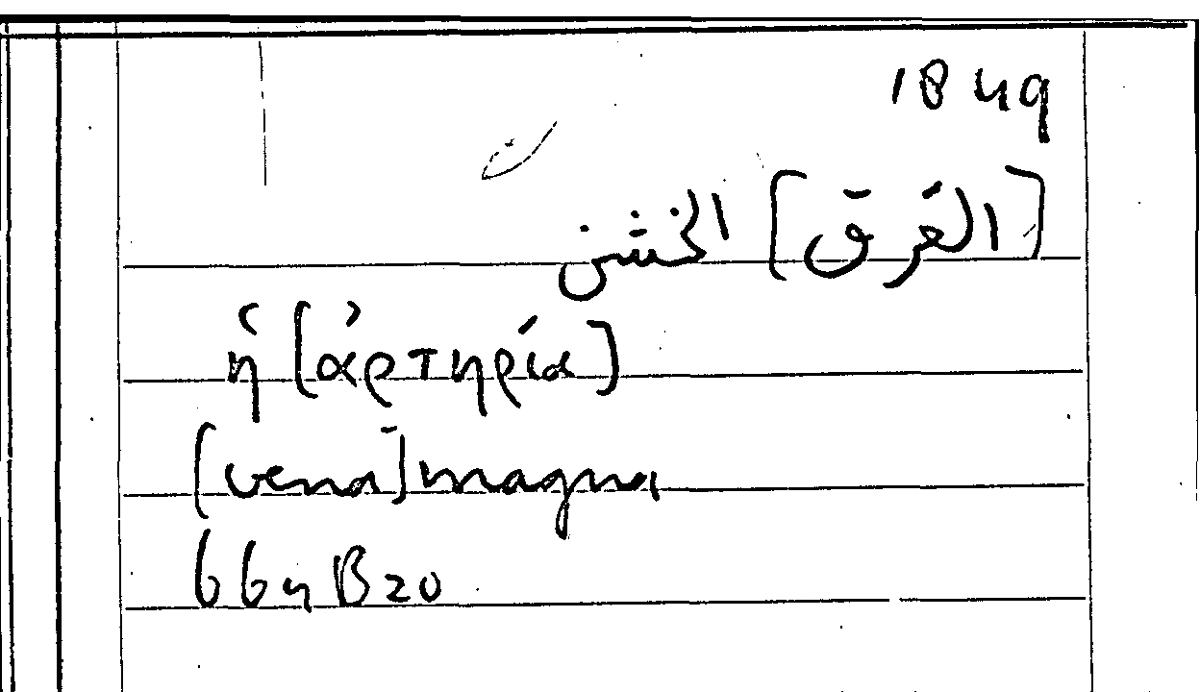 1849
[العرق] الخشن
ἡ [ἀρτηρία]
[vena] magna
664 B20